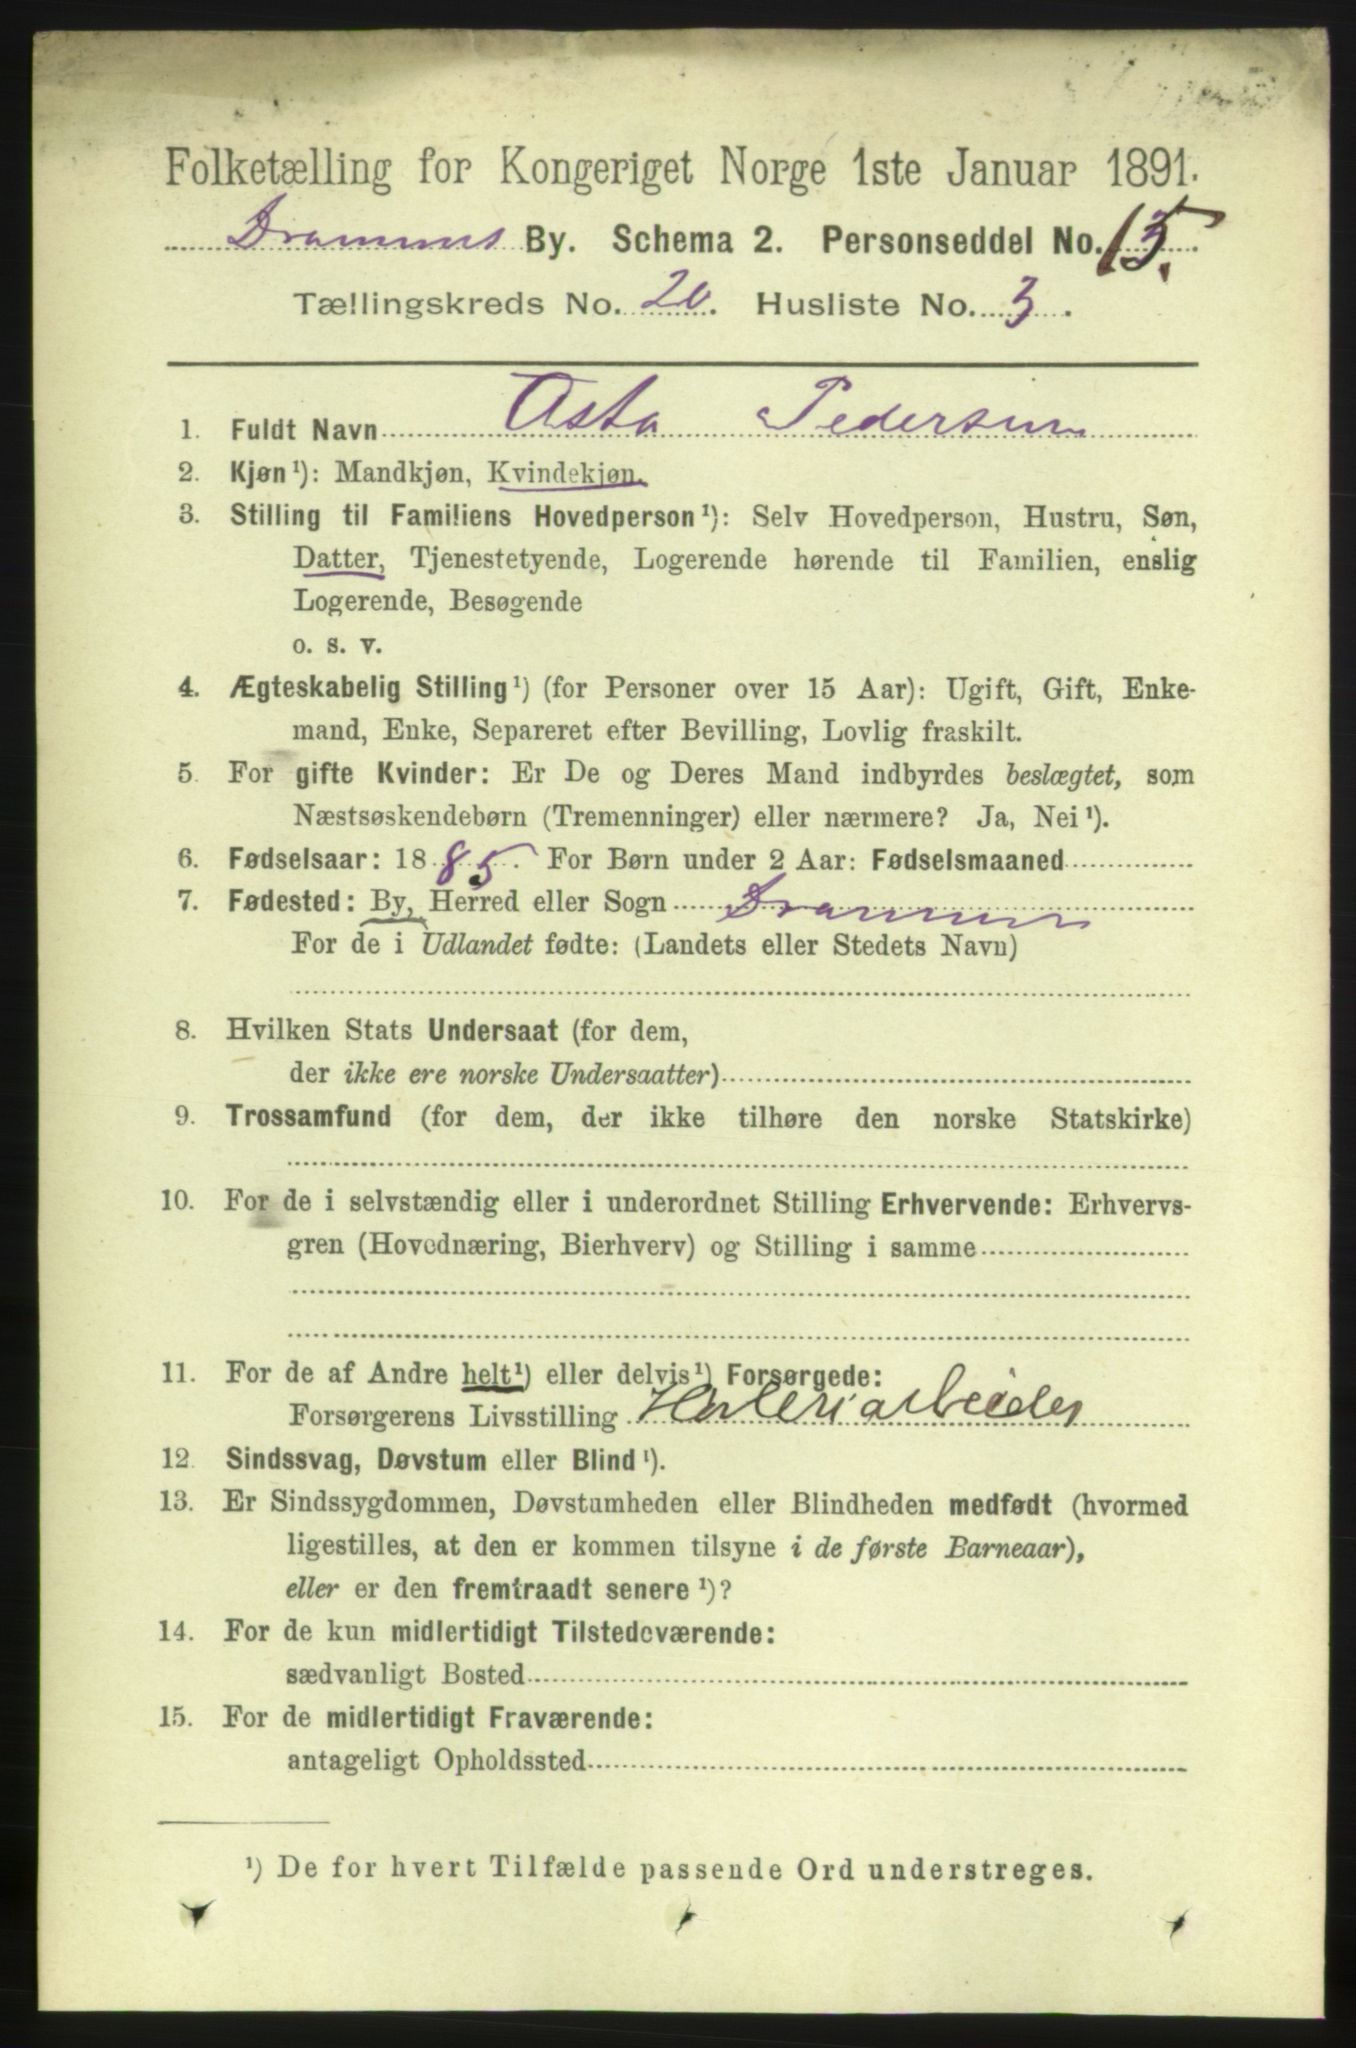 Folketælling for Kongeriget Norge 1ste Januar 1891.
Drammens By. Schema 2. Personseddel No. 15.
Tællingskreds No. 20. Husliste No. 3.
1. Fuldt Navn Asta Pedersen
2. Kjøn¹): Mandkjøn, Kvindekjøn.
3. Stilling til Familiens Hovedperson¹): Selv Hovedperson, Hustru, Søn,
Datter, Tjenestetyende, Logerende hørende til Familien, enslig
Logerende, Besøgende
o. s. v.
4. Ægteskabelig Stilling¹) (for Personer over 15 Aar): Ugift, Gift, Enke-
mand, Enke, Separeret efter Bevilling, Lovlig fraskilt.
5. For gifte Kvinder: Er De og Deres Mand indbyrdes beslægtet, som
Næstsøskendebørn (Tremenninger) eller nærmere? Ja, Nei¹).
6. Fødselsaar: 1885. For Børn under 2 Aar: Fødselsmaaned
7. Fødested: By, Herred eller Sogn Drammen
For de i Udlandet fødte: (Landets eller Stedets Navn)
8. Hvilken Stats Undersaat (for dem,
der ikke ere norske Undersaatter)
9. Trossamfund (for dem, der ikke tilhøre den norske Statskirke)
10. For de i selvstændig eller i underordnet Stilling Erhvervende: Erhvervs-
gren (Hovednæring, Bierhverv) og Stilling i samme
11. For de af Andre helt¹) eller delvis¹) Forsørgede:
Forsørgerens Livsstilling Høvleriarbeider
12. Sindssvag, Døvstum eller Blind¹).
13. Er Sindssygdommen, Døvstumheden eller Blindheden medfødt (hvormed
ligestilles, at den er kommen tilsyne i de første Barneaar),
eller er den fremtraadt senere¹)?
14. For de kun midlertidigt Tilstedeværende:
sædvanligt Bosted
15. For de midlertidigt Fraværende:
antageligt Opholdssted
¹) De for hvert Tilfælde passende Ord understreges.